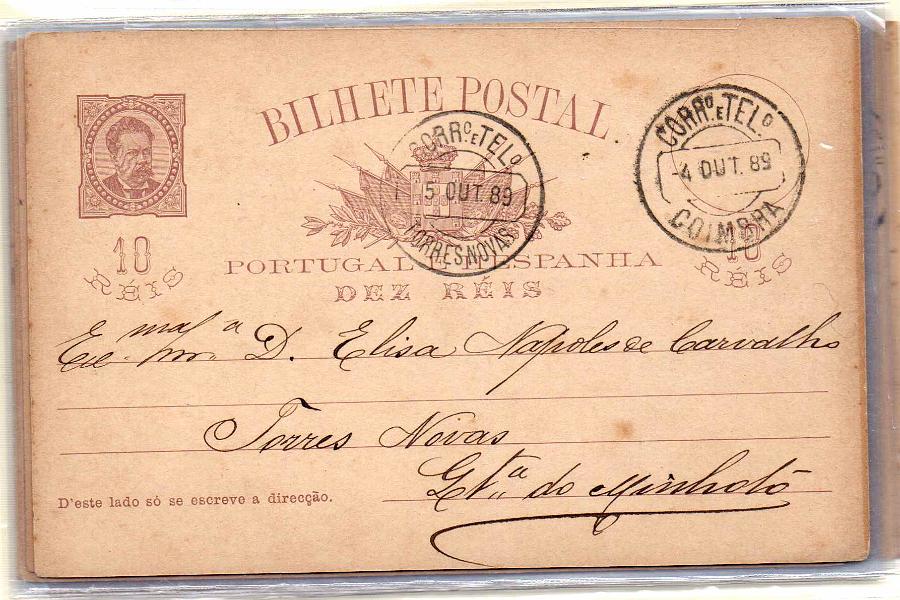 BILHETE POSTAL
CORR.º E TEL.º
5 OUT. 89
TORRES NOVAS
CORR.º E TEL.º
4 OUT. 89
COIMBRA
10
RÉIS
PORTUGAL HESPANHA
DEZ RÉIS
10
RÉIS
D. Elisa Napoles de Carvalho
Torres Novas
do Minhoto
D'este lado só se escreve a direcção.